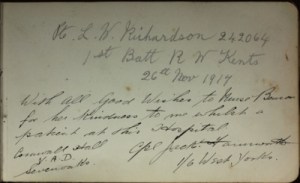 Pte L. W. Richardson 242064
1st Batt R W Kents
26th Nov 1917
With All Good Wishes to Nurse
for her Kindness to me whilst a
patient at this Hospital
Cornwall Hall
V.A.D.
Sevenoaks.
Cpl Jack
1/6 West Yorks.